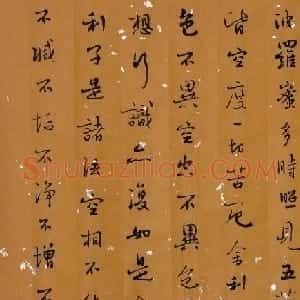 波羅蜜多時照見五
皆空度一切苦厄舍利
色不異空空不異色
想行識亦復如是
利子是諸法空相不
不滅不垢不淨不增不